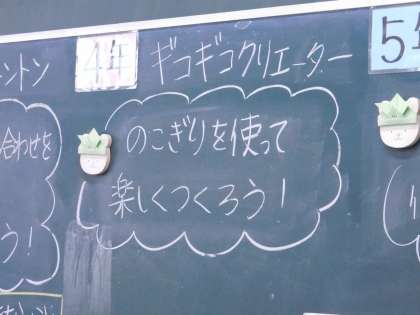 ントン
合わせを
う!
4年
ギコギコクリエーター
のこぎりを使って
楽しくつくろう!
5